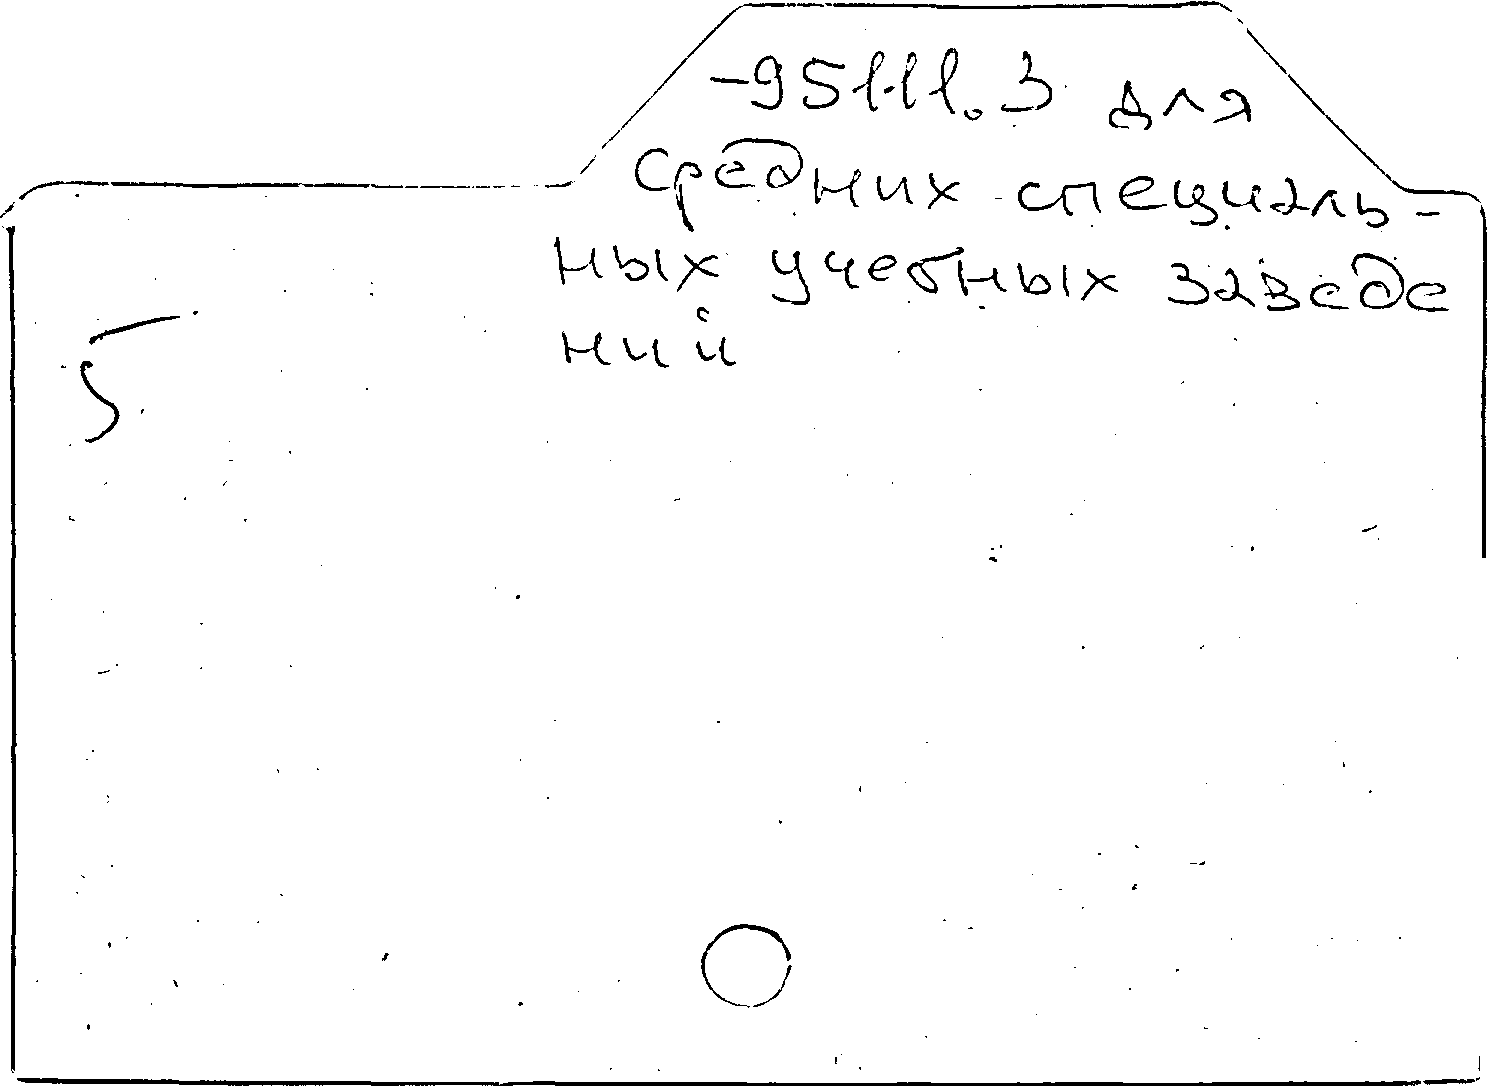 -95111.3 для
средних специаль-
ных учебных заведе
ний
5